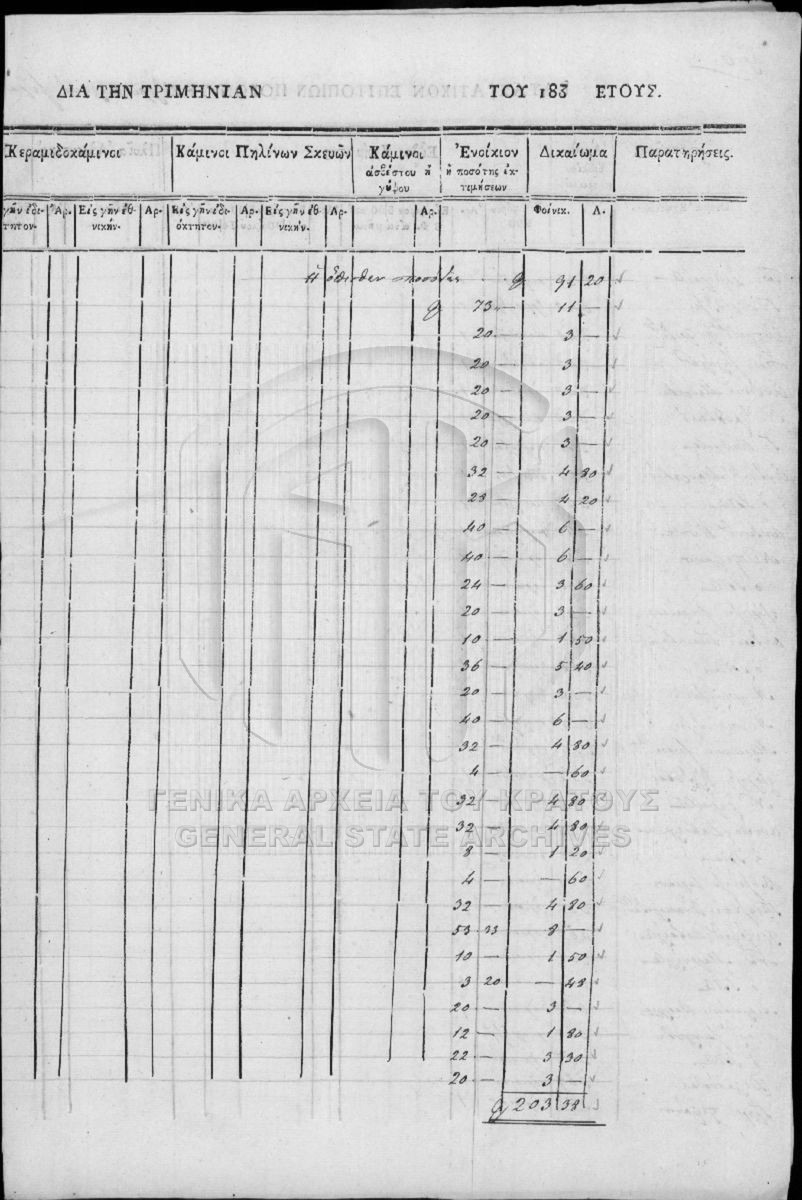 ΔΙΑ ΤΗΝ ΤΡΙΜΗΝΙΑΝ ΤΟΥ 183 ΕΤΟΥΣ.
Κεραμιδοκάμινοι Κάμινοι Πηλίνων Σκευῶν Κάμινοι Ἐνοίκιον Δικαίωμα Παρατηρήσεις.
ἀσβέστου ἢ ἢ ποσότης ἐκ-
γύψου τεμήσεων
γῆν ἰδι- Ἀρ. Εἰς γῆν ἐθ- Αρ- Εἰς γῆν ἰδι- Αρ. Εἰς γῆν ἐθ- Αρ- Αρ. Φοίνικ. Λ.
τητον- νικήν- όκτητον- νικήν-
Ἡ ὄπισθεν ποσότης 91 20
73 — 11 —
20 — 3 —
20 — 3 —
20 — 3 —
20 — 3 —
20 — 3 —
32 — 4 80
28 — 4 20
40 — 6 —
40 — 6 —
24 — 3 60
20 — 3 —
10 — 1 50
36 — 5 40
20 — 3 —
40 — 6 —
32 — 4 80
4 — — 60
32 — 4 80
32 — 4 80
8 — 1 20
4 — — 60
32 — 4 80
53 33 8 —
10 — 1 50
3 20 — 48
20 — 3 —
12 — 1 80
22 — 3 30
20 — 3 —
203 38
ΓΕΝΙΚΑ ΑΡΧΕΙΑ ΤΟΥ ΚΡΑΤΟΥΣ
GENERAL STATE ARCHIVES